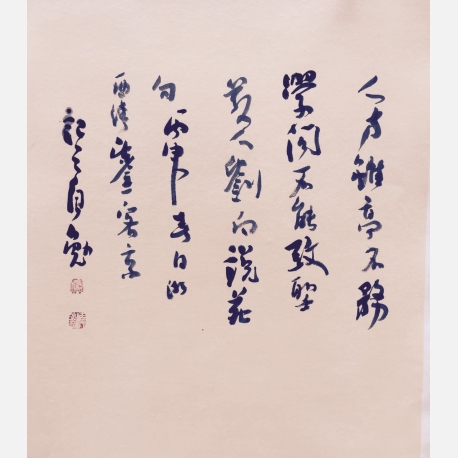 人才雖高不務
學問不能致聖
人劉向說苑
句丙申春日湘
西鑒客京
記之自勉